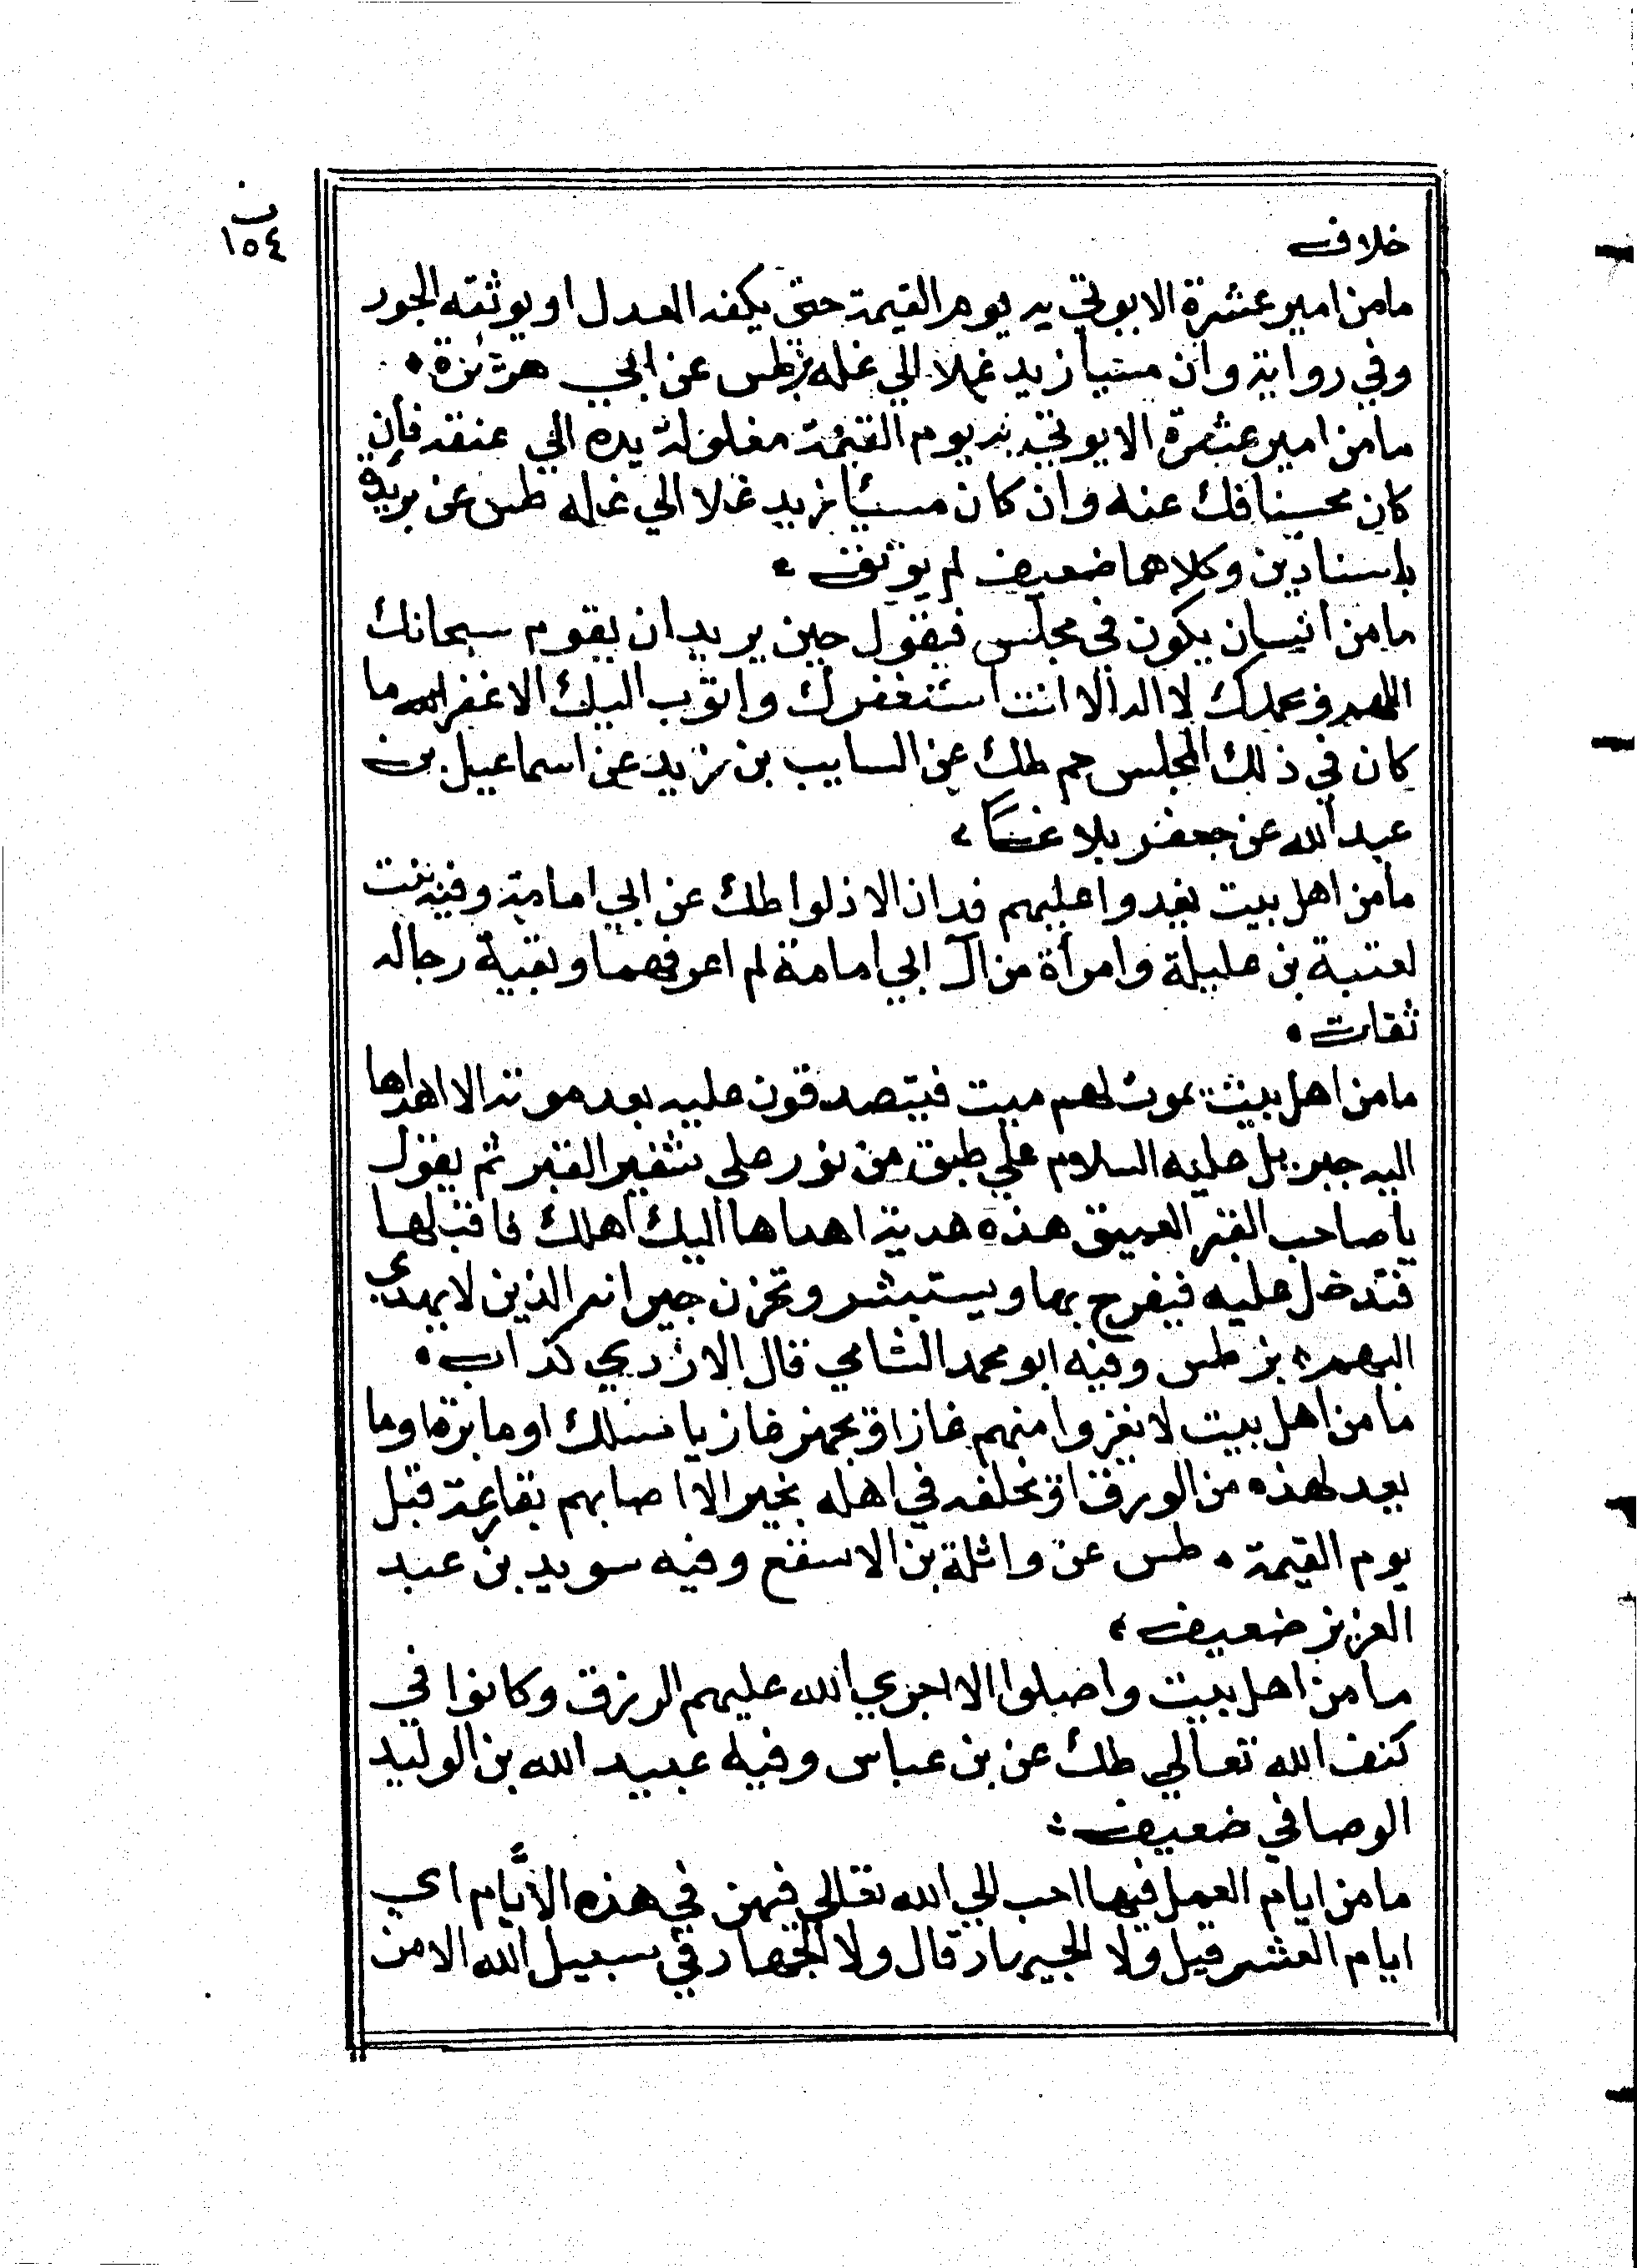 ب
١٥٤
خلاف
مامن امير عشرة الا يوتي به يوم القيمة حتي يكفه العدل او يوثقه الجور
وفي رواية وان مسيأ زيد غلا الي غله بز طس عن ابي هريرة
مامن امير عشرة الا يوتي به يوم القيمة مغلولة يده الي عنقه فان
كان محسنا فك عنه وان كان مسيئا زيد غلا الي غله طس عن بريدة
باسنادين وكلاهما ضعيف لم يوثق
مامن انسان يكون في مجلس فيقول حين يريد ان يقوم سبحانك
اللهم وبحمدك لا اله الا انت استغفرك واتوب اليك الا غفر له ما
كان في ذلك المجلس حم طك عن السايب بن يزيد عن اسماعيل بن
عبد الله عن جعفر بلاغا
مامن اهل بيت يغدوا عليهم فدان الا ذلوا طك عن ابي امامة وفيه بنت
لعتبة بن عليلة وامرأة من آل ابي امامة لم اعرفهما وبقية رجاله
ثقات
مامن اهل بيت يموت لهم ميت فيتصدقون عليه بعد موته الا اهداها
اليه جبريل عليه السلام علي طبق من نور علي شفير القبر ثم يقول
يا صاحب القبر العميق هذه هدية اهداها اليك اهلك فاقبلها
فتدخل عليه فيفرح بها ويستبشر وتحزن جيرانه الذين لا يهدي
اليهم بز طس وفيه ابو محمد الشامي قال الازدي كذاب
مامن اهل بيت لا يغزوا منهم غاز او يجهز غازيا بسلك او مابرة وما
يعد لهذه من الورق او يخلفه في اهله بخير الا اصابهم بقارعة قبل
يوم القيمة طس عن واثلة بن الاسقع وفيه سويد بن عبد
العزيز ضعيف
مامن اهل بيت واصلوا الا اجري الله عليهم الرزق وكانوا في
كنف الله تعالي طك عن بن عباس وفيه عبيد الله بن الوليد
الوصافي ضعيف
مامن ايام العمل فيها احب الي الله تعالي فيهن في هذه الأيام اي
ايام العشر قيل ولا الجهاد قال ولا الجهاد في سبيل الله الا من